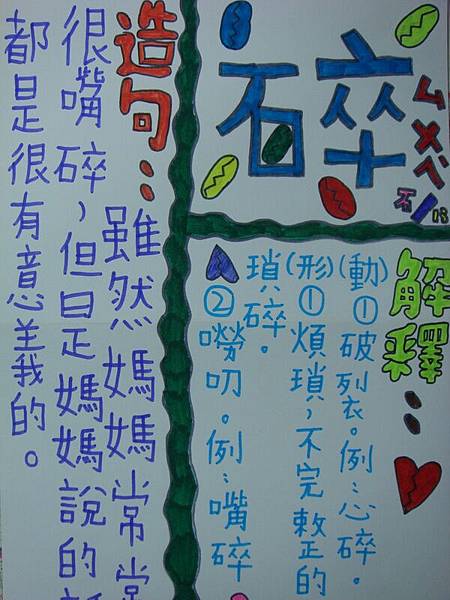 碎
ㄙㄨㄟˋ
石/13
解釋:
(動)①破裂。例:心碎。
(形)①煩瑣,不完整的
瑣碎。
②嘮叨。例:嘴碎
造句:
雖然媽媽常常
很嘴碎,但是媽媽說的話
都是很有意義的。